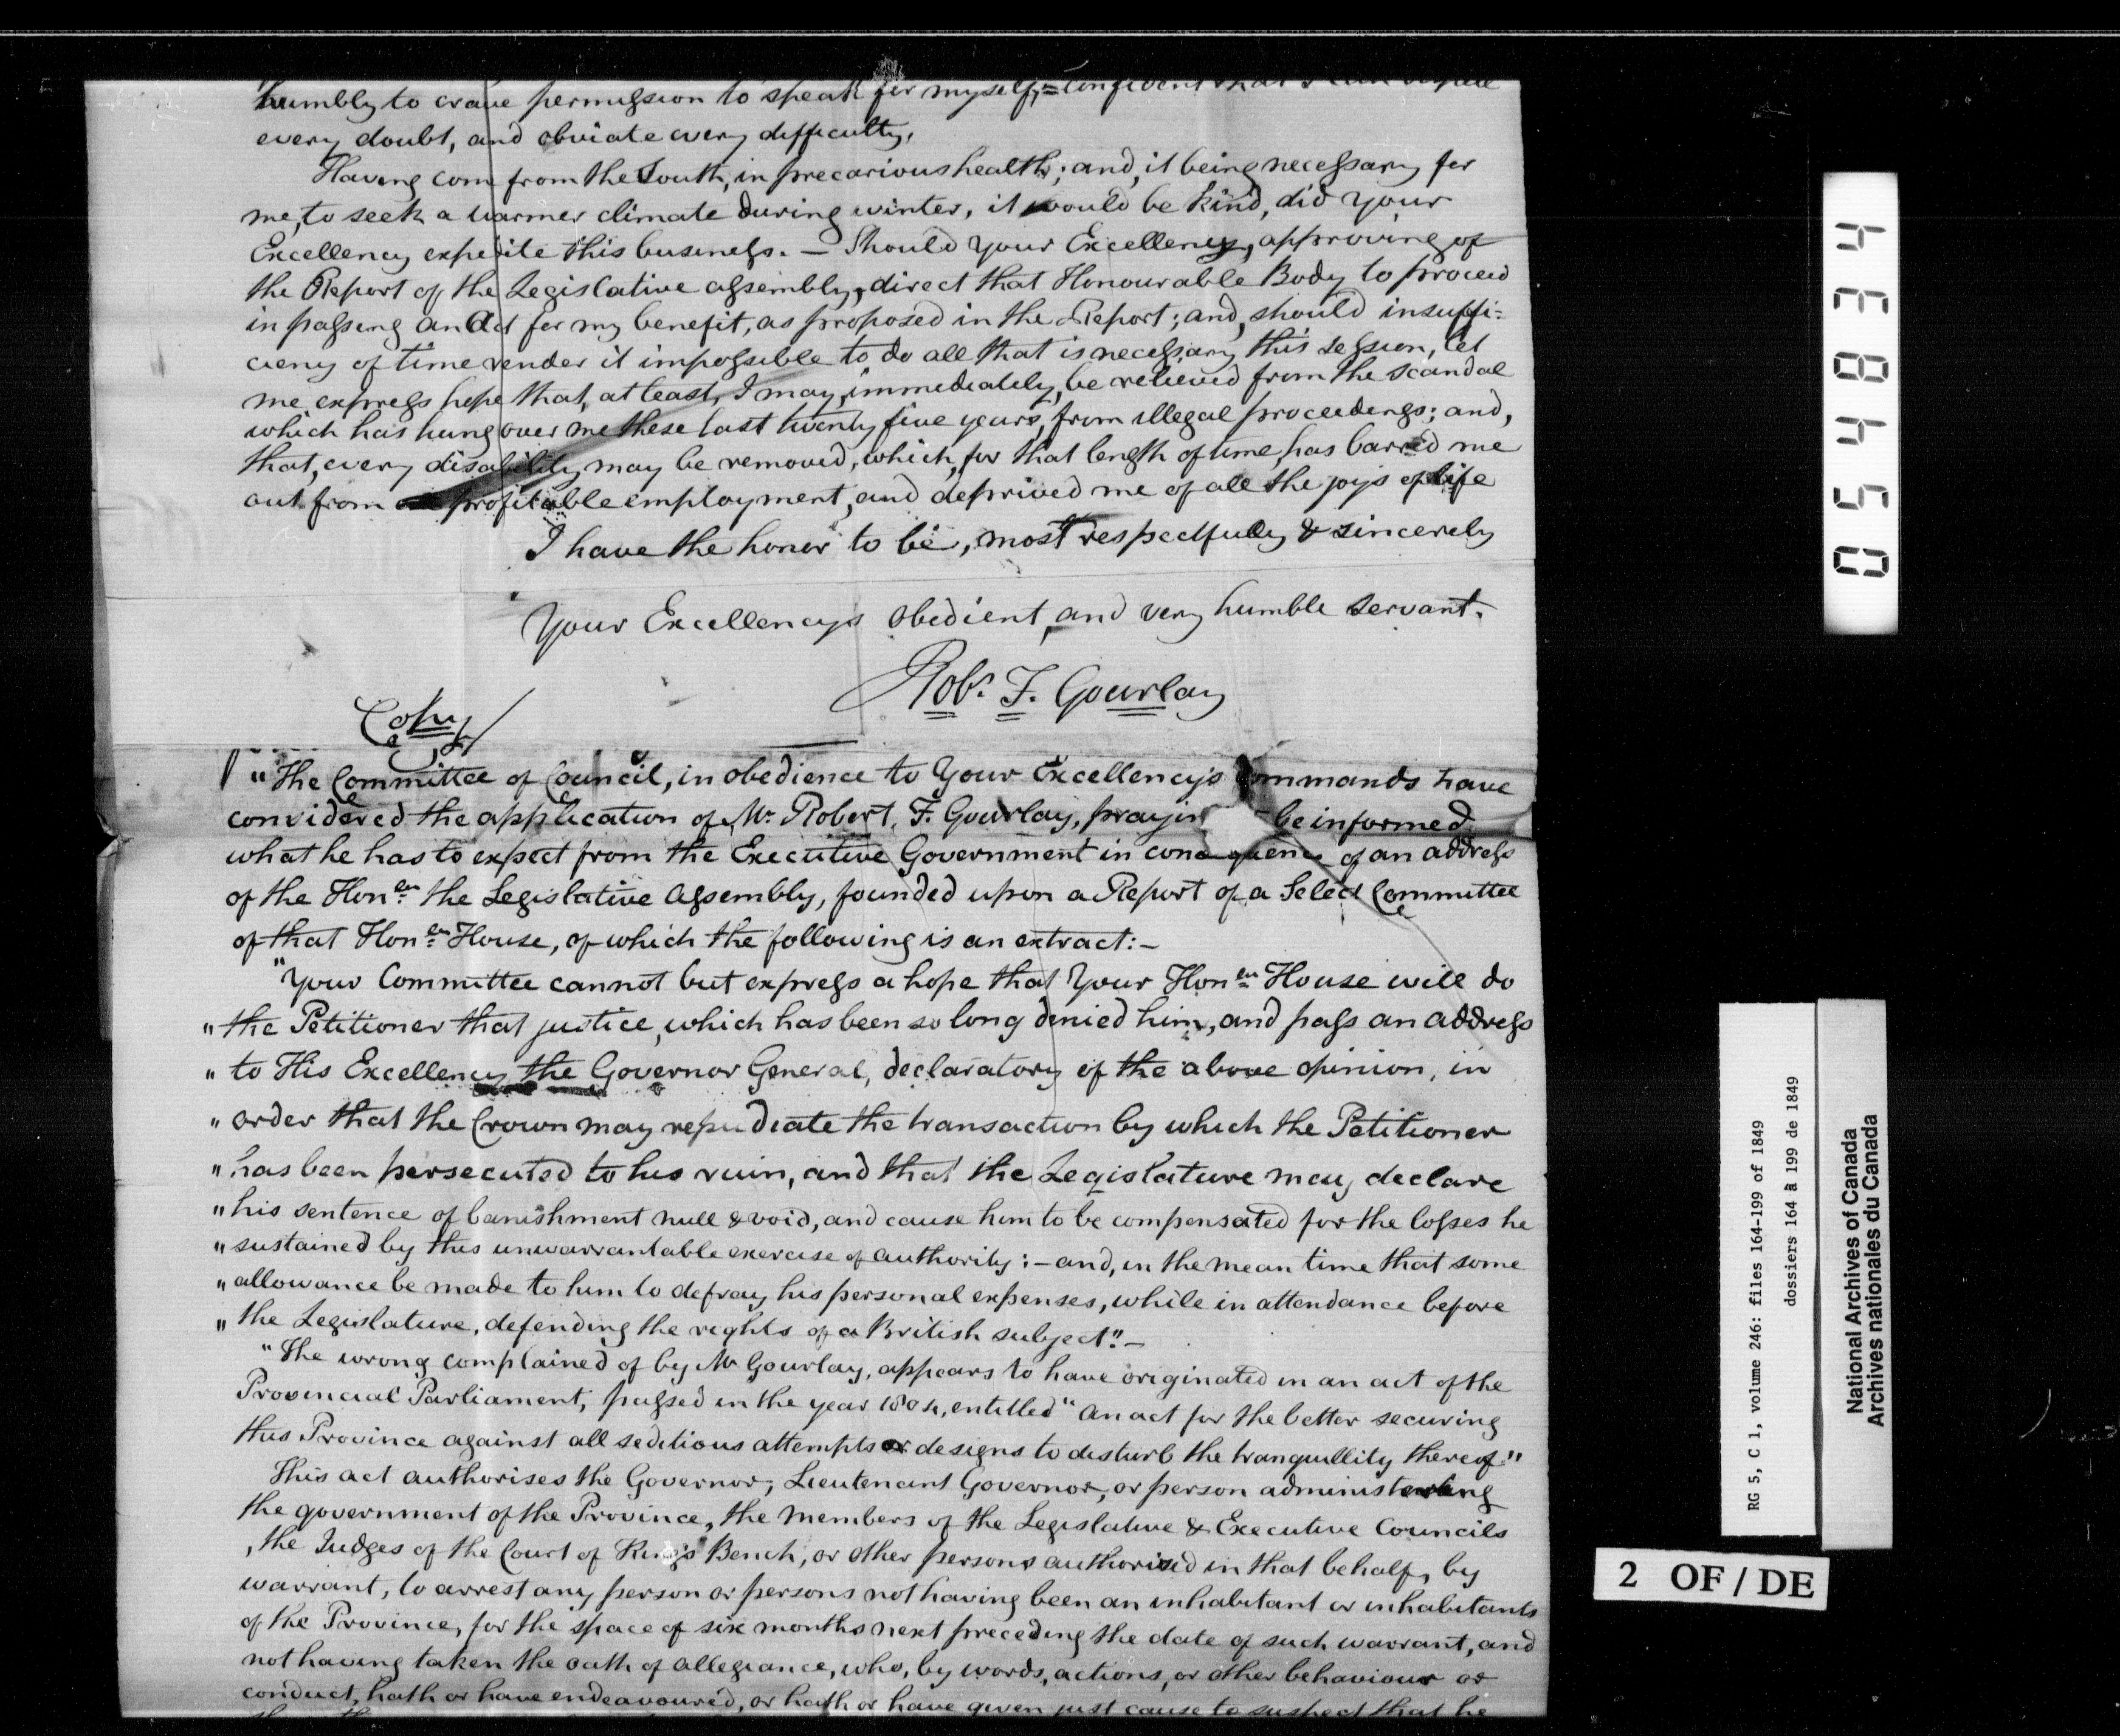 humbly to crave permission to speak for myself, = confident that I can
every doubt, and obviate every difficulty.
Having come from the South, in precarious health; and, it being necessary for
me, to seek a warmer climate during winter, it would be kind, did Your
Excellency expedite this business. — Should Your Excellency, approving of
the Report of the Legislative assembly, direct that Honourable Body to proceed
in passing an Act for my benefit, as proposed in the Report; and, should insuffi-
ciency of time render it impossible to do all that is necessary this session, let
me express hope that, at least, I may, immediately, be relieved from the scandal
which has hung over me these last twenty five years, from illegal proceedings; and,
that, every disability may be removed, which, for that length of time, has barred me
out from profitable employment, and deprived me of all the joys of life
I have the honor to be, most respectfully & sincerely
Your Excellencys obedient, and very humble servant.
Robt. F. Gourlay
Copy
"The Committee of Council, in obedience to Your Excellency's commands have
considered the application of Mr. Robert. F. Gourlay, prayin be informed
what he has to expect from the Executive Government in consequence of an address
of the Honble. the Legislative Assembly, founded upon a Report of a Select Committee
of that Honble. House, of which the following is an extract:—
"Your Committee cannot but express a hope that Your Honble. House will do
" the Petitioner that justice, which has been so long denied him, and pass an address
" to His Excellency the Governor General, declaratory of the above opinion, in
" order that the Crown may repudiate the transaction by which the Petitioner
" has been persecuted to his ruin, and that the Legislature may declare
" his sentence of banishment null & void, and cause him to be compensated for the losses he
" sustained by this unwarrantable exercise of authority: — and, in the mean time that some
" allowance be made to him to defray his personal expenses, while in attendance before
" the Legislature, defending the rights of a British subject". —
"The wrong complained of by Mr Gourlay, appears to have originated in an act of the
Provincial Parliament, passed in the year 1804, entitled "An act for the better securing
this Province against all seditious attempts or designs to disturb the tranquillity thereof"
This act authorises the Governor, Lieutenant Governor, or person administering
the government of the Province, the members of the Legislative & Executive Councils
, the Judges of the Court of King's Bench, or other persons authorised in that behalf, by
warrant, to arrest any person or persons not having been an inhabitant or inhabitants
of the Province, for the space of six months next preceding the date of such warrant, and
not having taken the oath of allegiance, who, by words, actions, or other behaviour or
conduct, hath or have endeavoured, or hath or have given just cause to suspect that he
054834
RG 5, C 1, volume 246: files 164-199 of 1849
dossiers 164 à 199 de 1849
National Archives of Canada
Archives nationales du Canada
2 OF / DE